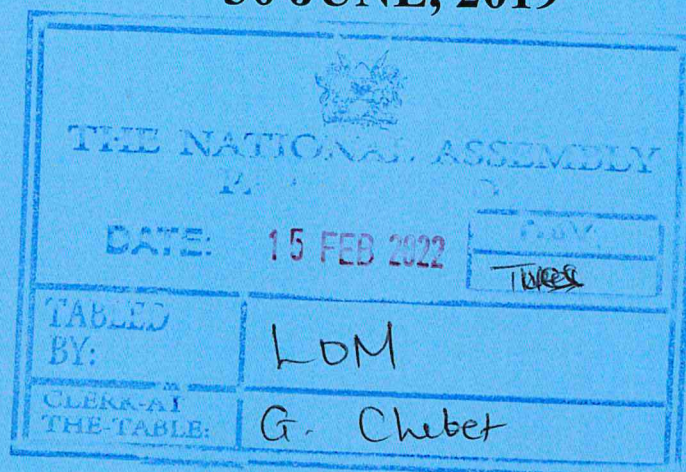 30 JUNE, 2019
THE NATIONAL ASSEMBLY
DATE: 15 FEB 2022
DAY:
TABLED
BY: LOM
CLERK-AT
THE-TABLE: G. Chebet